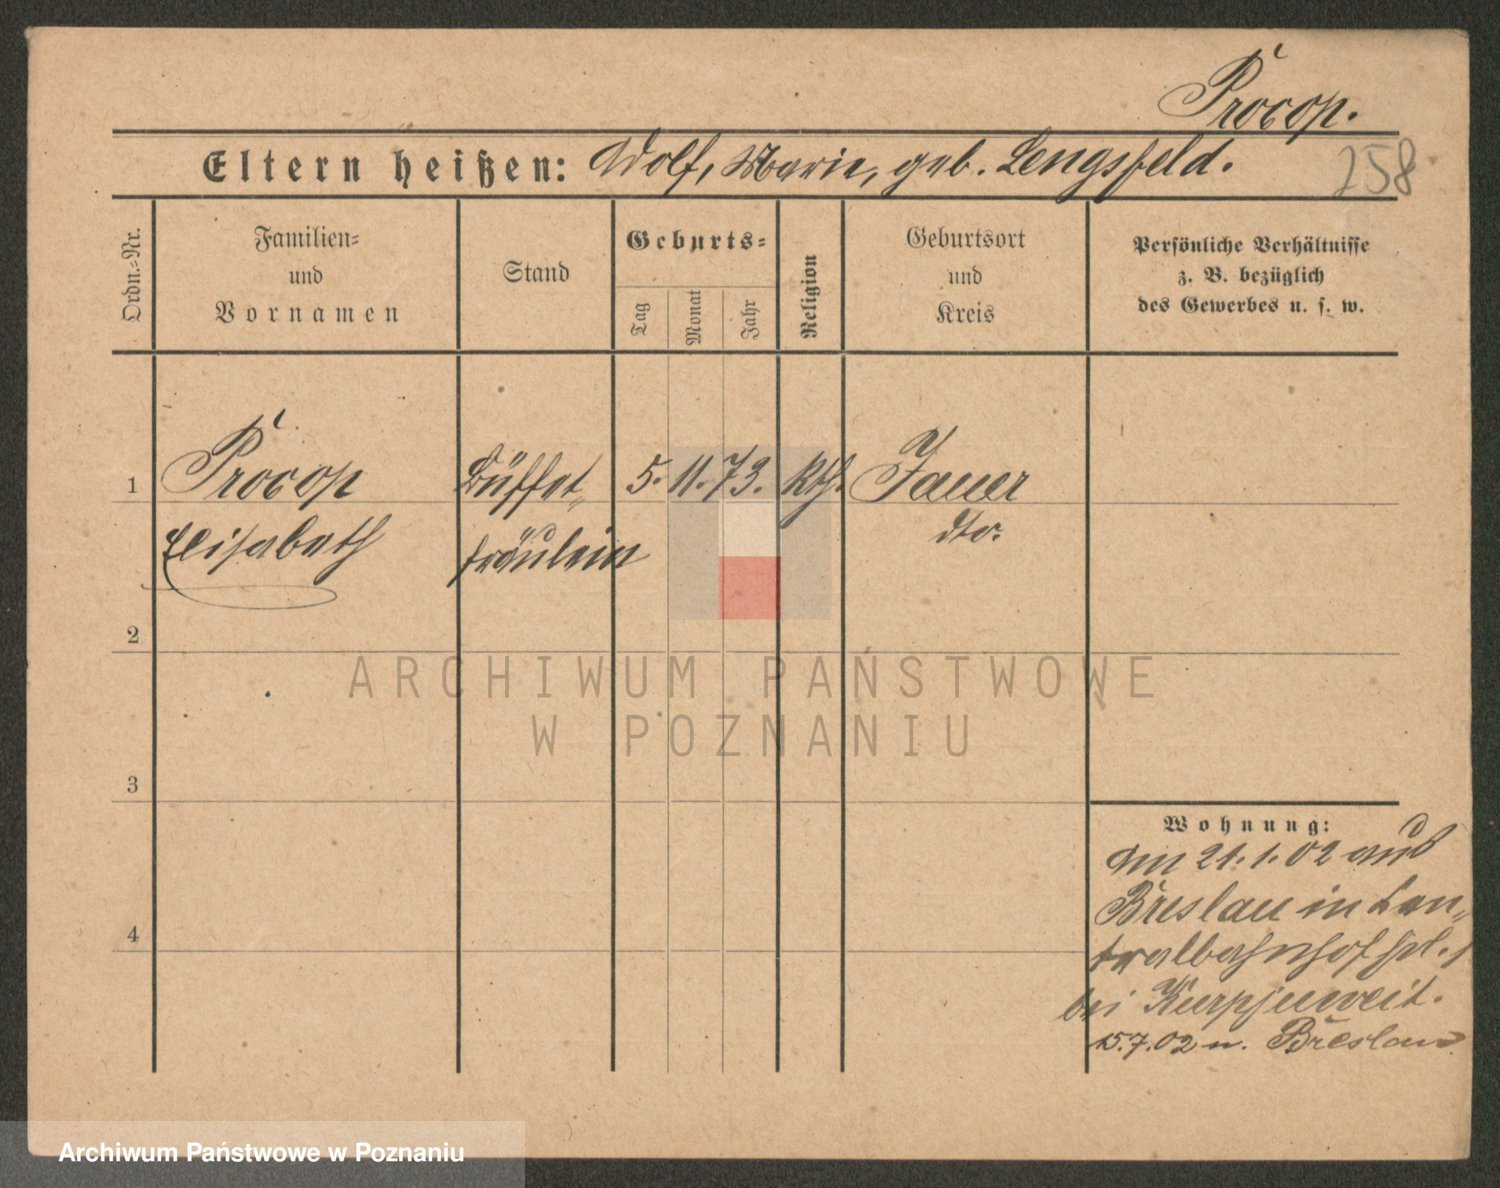 Procop.
Eltern heißen: Adolf, Marie, geb. Lengsfeld.
258
Ordn.-Nr.
Familien-
und
Vornamen
Stand
Geburts-
Tag
Monat
Jahr
Religion
Geburtsort
und
Kreis
Persönliche Verhältnisse
z. B. bezüglich
des Gewerbes u. s. w.
1 Procop Büffet- 5. 11. 73. kth. Jauer
Elisabeth fräulein dto.
2
3
4
Wohnung:
Am 21.1.02 aus
Breslau in Cen-
tralbahnhof
bei Kurpjuweit.
15.7.02 n. Breslau
ARCHIWUM PAŃSTWOWE
W POZNANIU
Archiwum Państwowe w Poznaniu